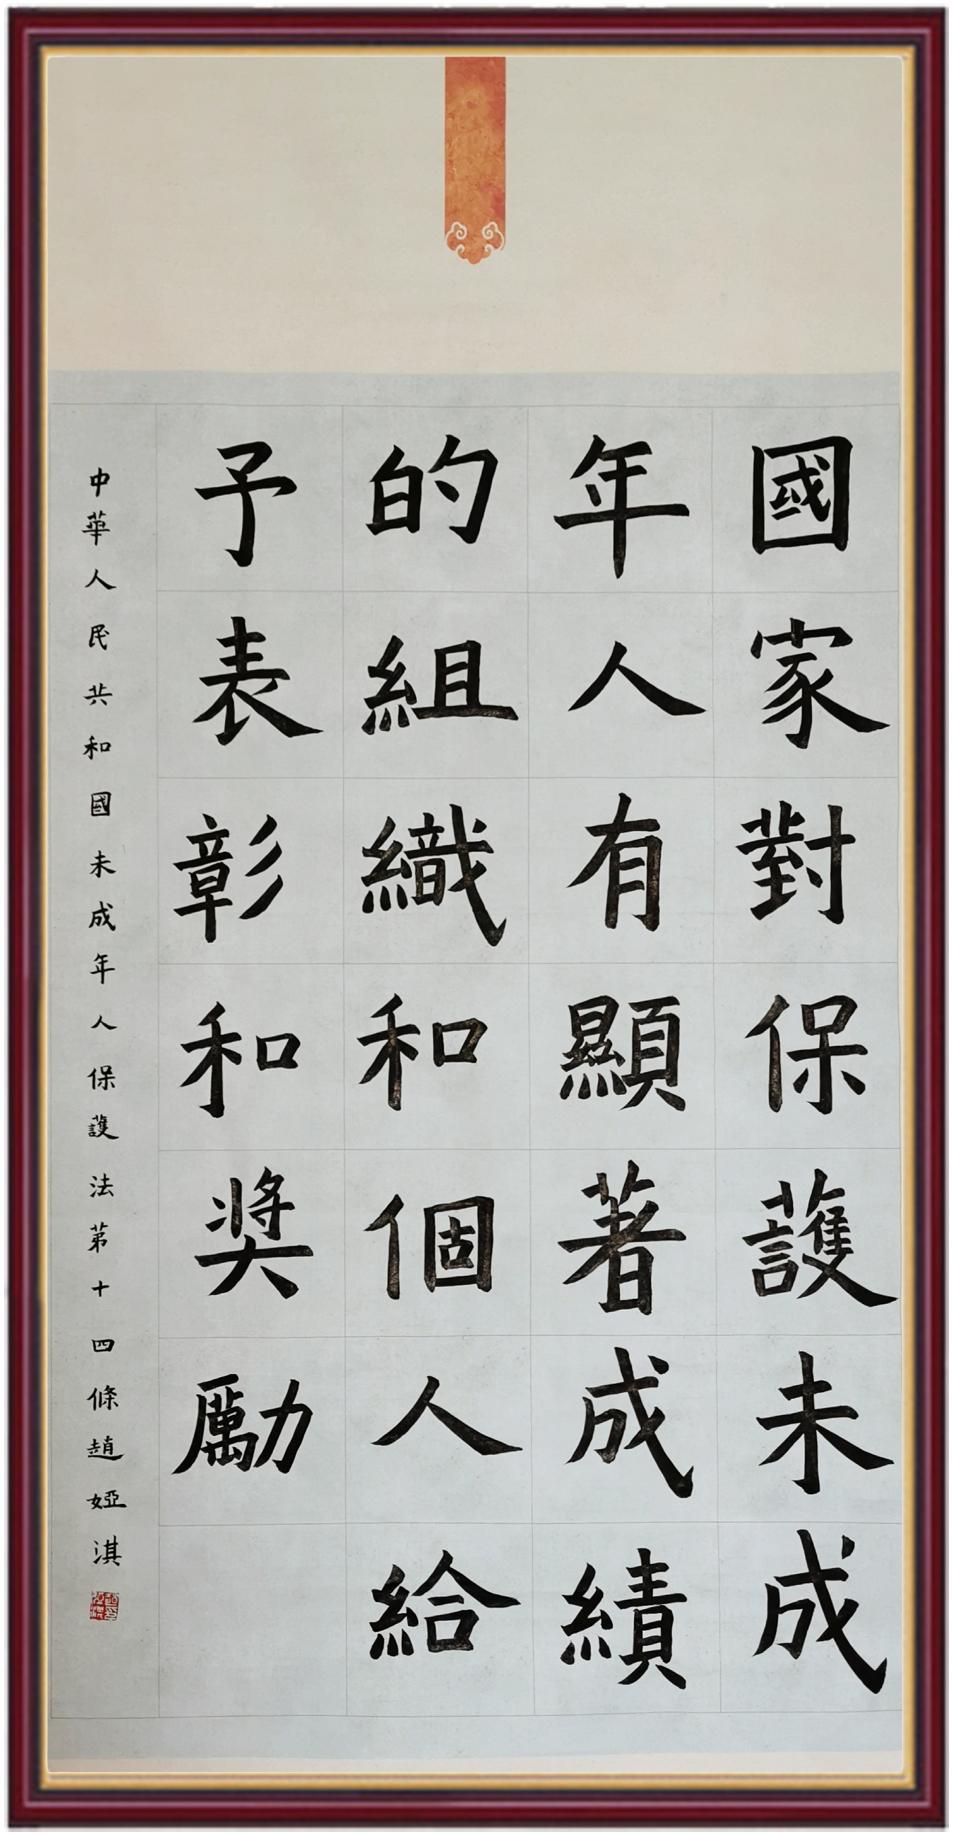 國家對保護未成
年人有顯著成績
的組織和個人給
予表彰和奖勵
中華人民共和國未成年人保護法第十四條趙婭淇